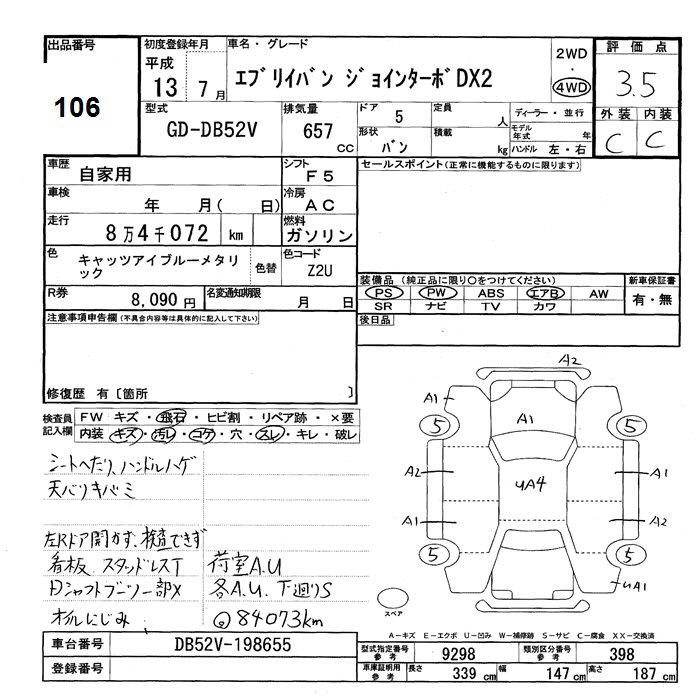 出品番号
106
初度登録年月
平成
13 7月
車名・グレード
エブリイバン ジョインターボDX2
2WD
・
4WD
評価点
3.5
外装 内装
C C
型式
GD-DB52V
排気量
657
CC
ドア 5
形状 バン
定員 人
積載 kg
ディーラー・並行
モデル年式 年
ハンドル 左・右
車歴 自家用
シフト F5
車検 年 月( 日)
冷房 AC
走行 8万4千072 km
燃料 ガソリン
色 キャッツアイブルーメタリック
色替
色コード Z2U
R券 8,090円
名変通知期限 月 日
セールスポイント(正常に機能するものに限ります)
装備品(純正品に限り○をつけてください)
PS PW ABS エアB AW
SR ナビ TV カワ
新車保証書
有・無
後日品
注意事項申告欄(不具合内容等は具体的に記入して下さい)
修復歴 有〔箇所 〕
検査員記入欄
FW キズ・飛石・ヒビ割・リペア跡・×要
内装 キズ・汚レ・コゲ・穴・スレ・キレ・破レ
シートへたり、ハンドルハゲ
天バリキバミ
左Rドア開かず、検査できず
看板 スタッドレスT
Dシャフトブーツ一部X
オイルにじみ
荷室A.U
各A.U. 下廻りS
@84073km
A2
A1
A1
5
5
A2
A1
UA4
A1
A2
5
5
UA1
スペア
A-キズ E-エクボ U-凹み W-補修跡 S-サビ C-腐食 XX-交換済
車台番号 DB52V-198655
登録番号
型式指定番号 参考 9298
類別区分番号 参考 398
車庫証明用 参考 長さ 339cm 幅 147cm 高さ 187cm